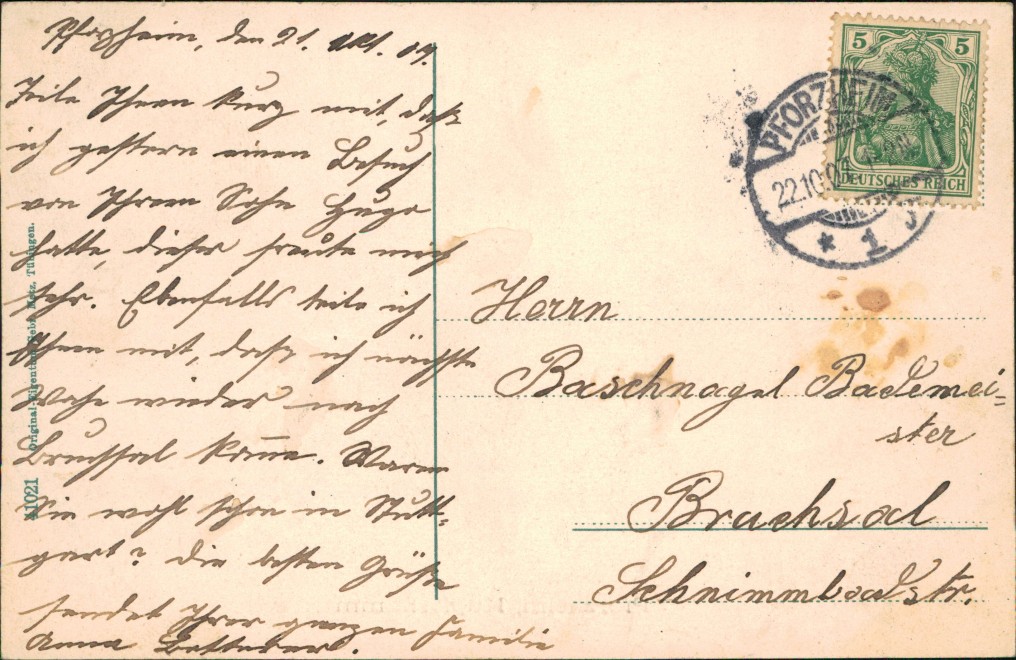 Pforzheim, den 21. Okt. 09.
Teile Ihnen kurz mit, daß
ich gestern einen Besuch
von Ihrem Sohn Hugo
hatte, dieser freute mich
sehr. Ebenfalls teile ich
Ihnen mit, daß ich nächste
Woche wieder nach
Bruchsal komme. Waren
Sie wohl schon in Stutt-
gart? Die besten Grüße
sendet Ihrer ganzen Familie
Anna
5 5
DEUTSCHES REICH
PFORZHEIM
22.10.09
* 1 J
Herrn
Baschnagel Bademei=
ster
Bruchsal
Schwimmbadstr.
41021 Original-Eigenthum Gebr. Metz, Tübingen.